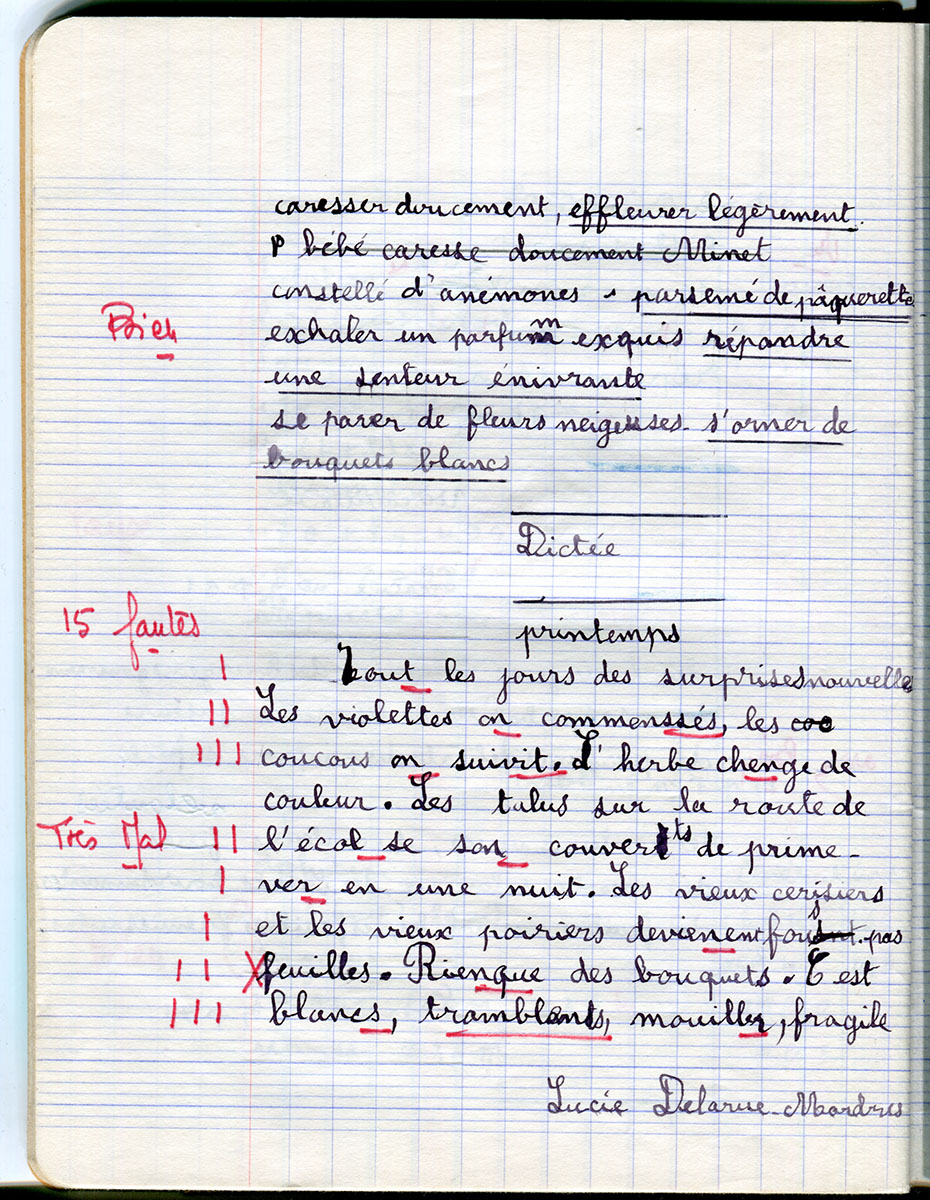 caresser doucement, effleurer légèrement.
bébé caresse doucement Minet
constellé d'anémones, parsemé de pâquerette
Bien
exhaler un parfum exquis répandre
une senteur énivrante
se parer de fleurs neigeuses. s'orner de
bouquets blancs
Dictée
15 fautes
printemps
Tout les jours des surprises nouvelles
Les violettes on commenssés, les coo
coucous on suivit. L'herbe chenge de
couleur. Les talus sur la route de
Très Mal
l'écol se son couverts de prime-
ver en une nuit. Les vieux cerisiers
et les vieux poiriers devienent fous. pas
feuilles. Rienque des bouquets. C est
blancs, tramblants, mouiller, fragile
Lucie Delarue-Mardrus